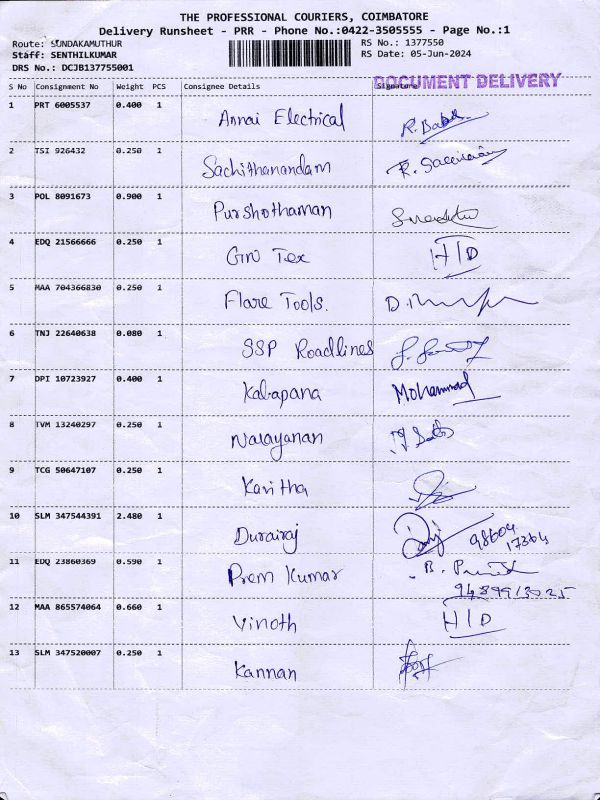 THE PROFESSIONAL COURIERS, COIMBATORE
Delivery Runsheet - PRR - Phone No.:0422-3505555 - Page No.:1
Route: SUNDAKAMUTHUR RS No.: 1377550
Staff: SENTHILKUMAR RS Date: 05-Jun-2024
DRS No.: DCJB137755001
DOCUMENT DELIVERY
S No Consignment No Weight PCS Consignee Details Signature
1 PRT 6005537 0.400 1 Annai Electrical R. Babu
2 TSI 926432 0.250 1 Sachithanandam
3 POL 8091673 0.900 1 Purshothaman
4 EDQ 21566666 0.250 1 GW Tex H/D
5 MAA 704366830 0.250 1 Flare Tools.
6 TNJ 22640638 0.080 1 SSP Roadlines
7 DPI 10723927 0.400 1 Kalapana Mohammad
8 TVM 13240297 0.250 1 Narayanan
9 TCG 50647107 0.250 1 Kavitha
10 SLM 347544391 2.480 1 Durairaj 98604
17364
11 EDQ 23860369 0.590 1 Prem Kumar
12 MAA 865574064 0.660 1 Vinoth H/D
13 SLM 347520007 0.250 1 Kannan